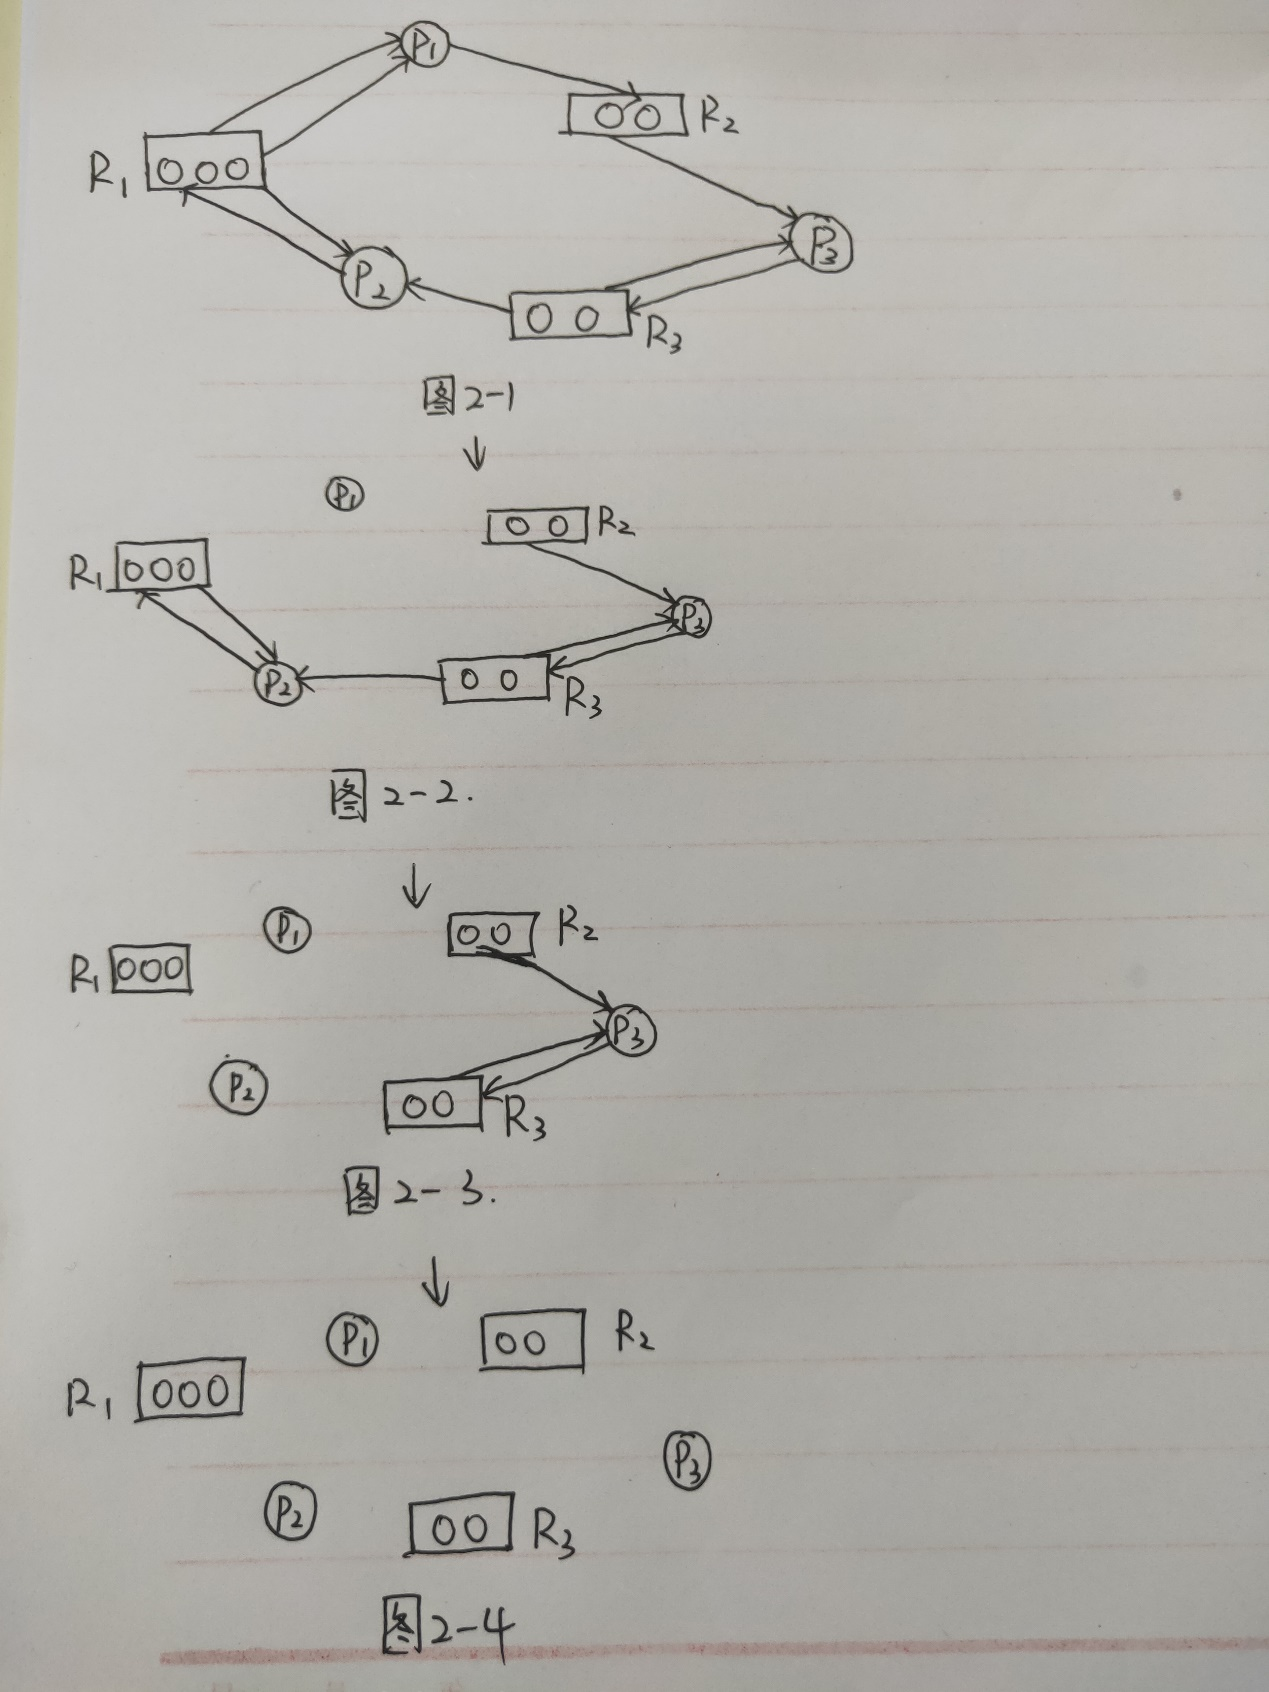 P₁
R₂
R₁
P₃
P₂
R₃
图2-1
P₁
R₂
R₁
P₃
P₂
R₃
图2-2.
P₁ R₂
R₁
P₃
P₂
R₃
图2-3.
P₁ R₂
R₁
P₃
P₂
R₃
图2-4